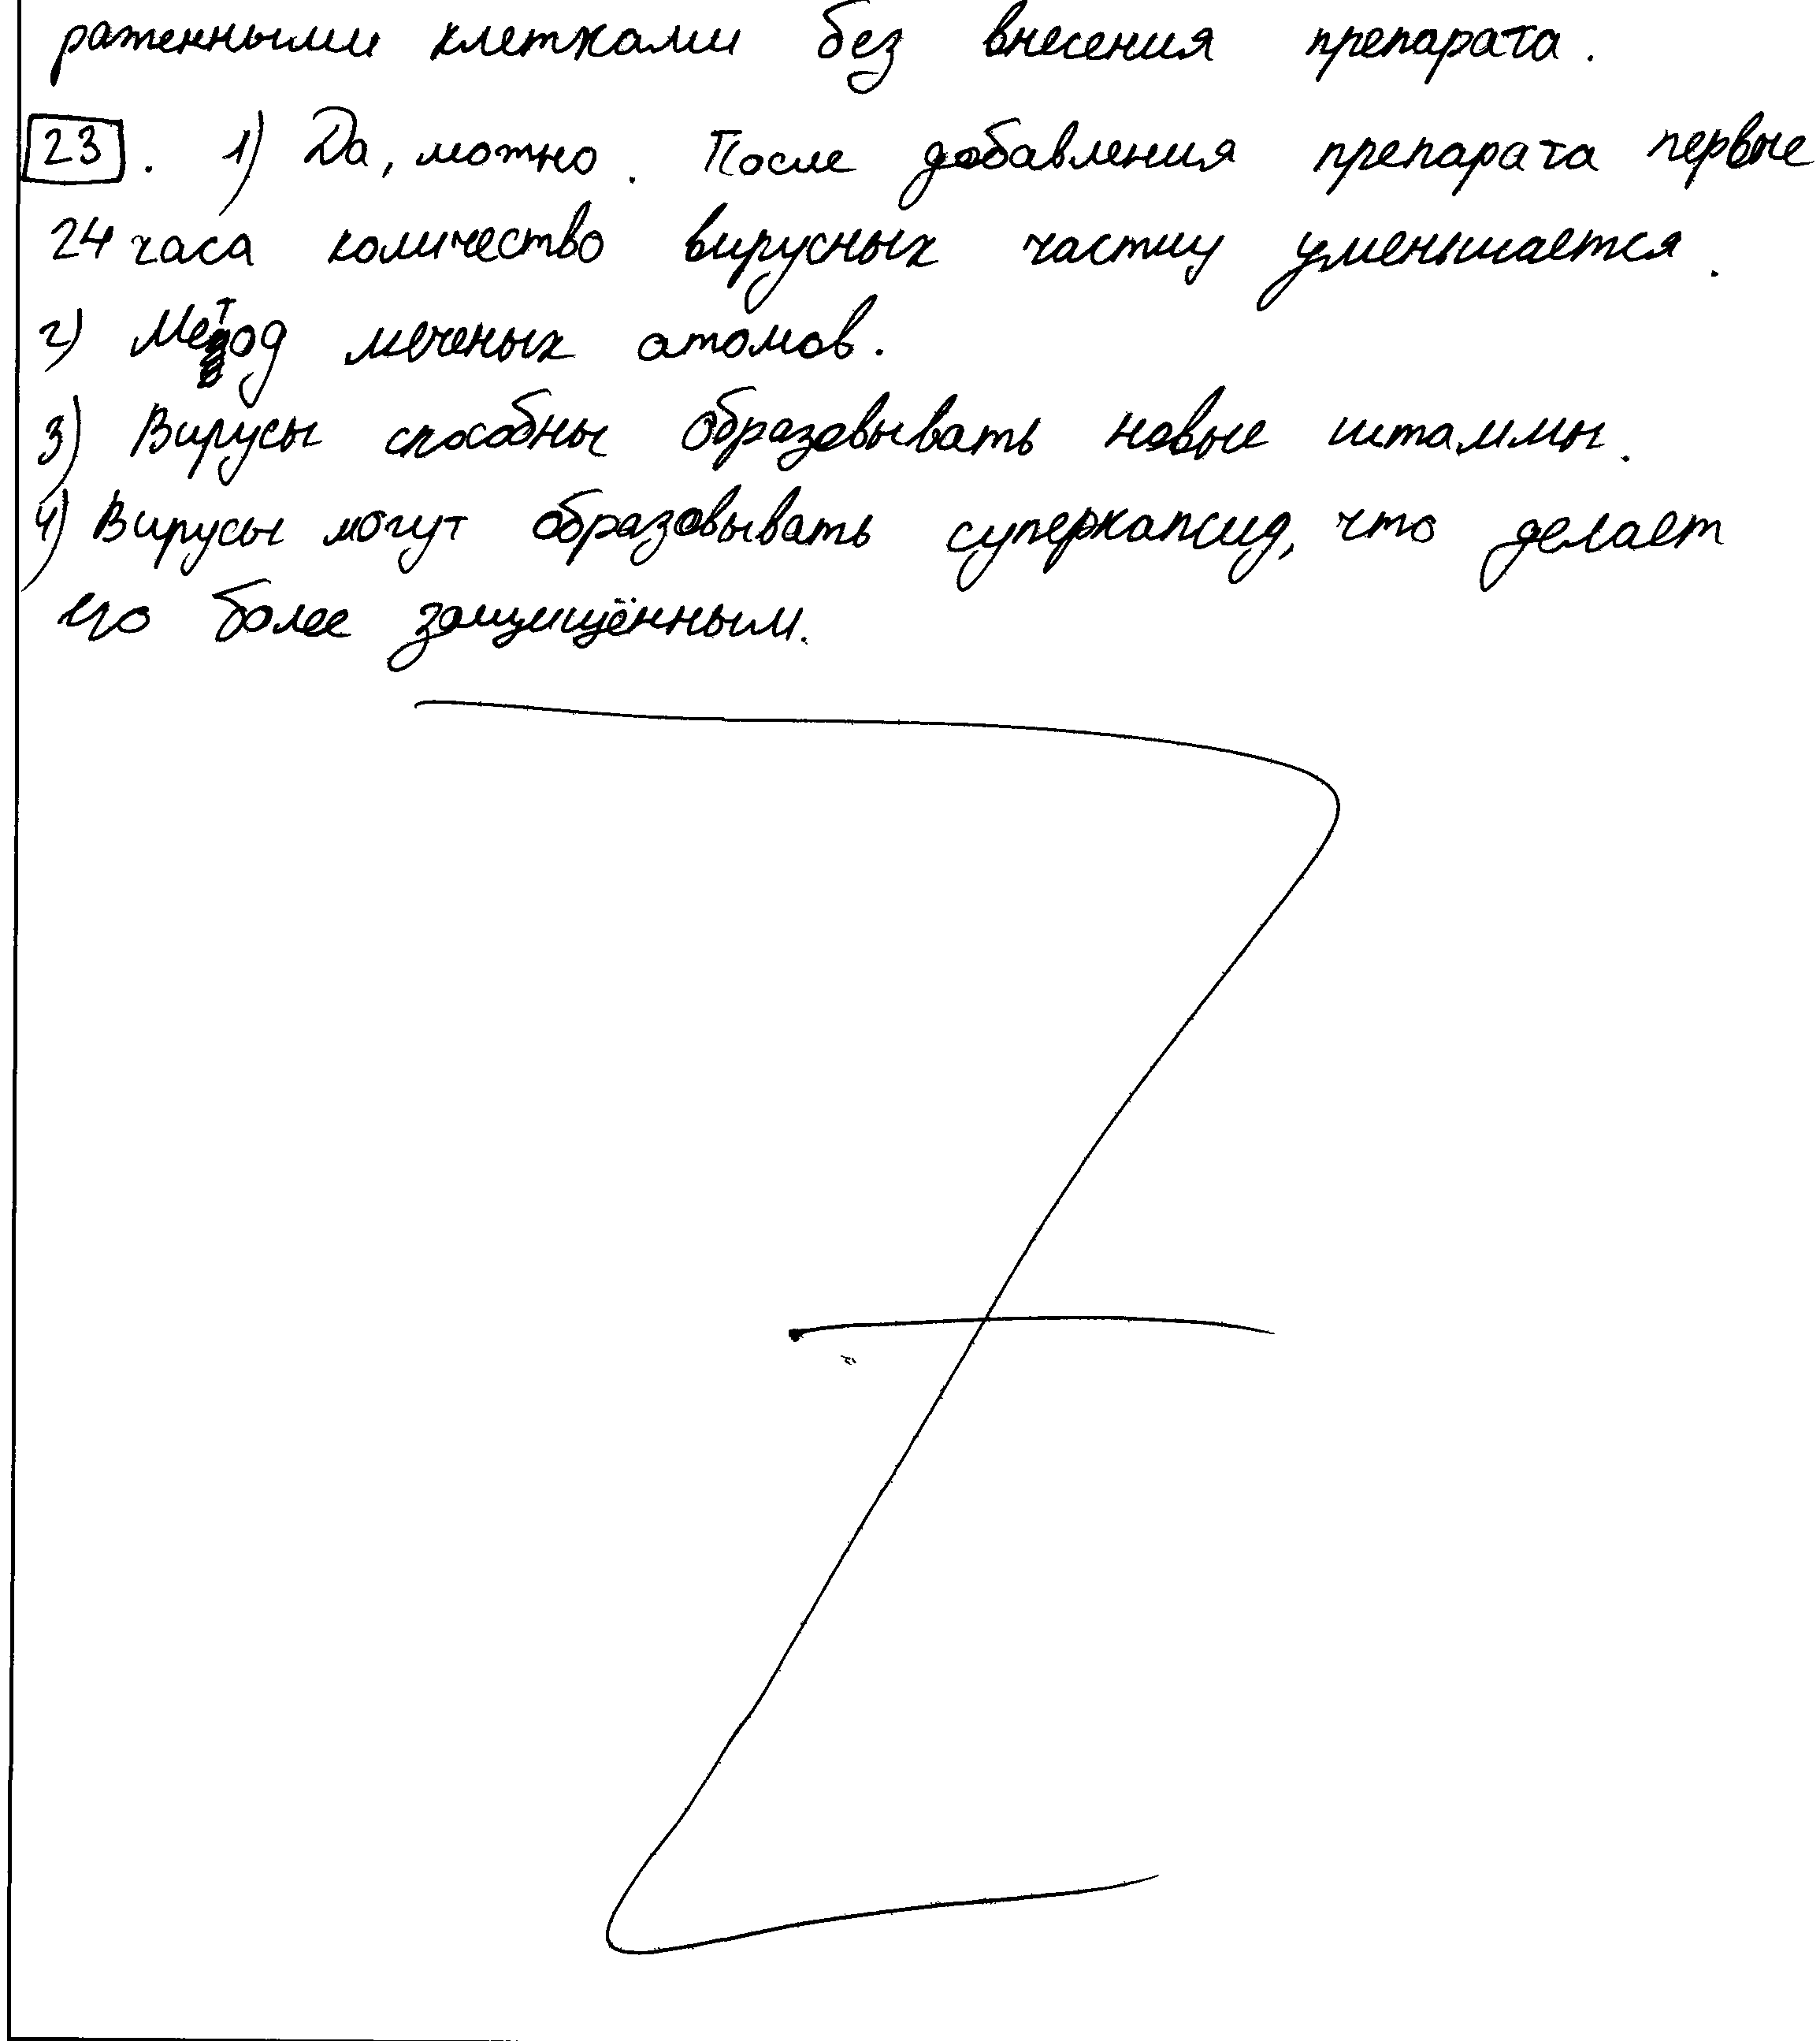 раженными клетками без внесения препарата.
23. 1) Да, можно. После добавления препарата первые
24 часа количество вирусных частиц уменьшается.
2) Метод меченых атомов.
3) Вирусы способны образовывать новые штаммы.
4) Вирусы могут образовывать суперкапсид, что делает
его более защищённым.